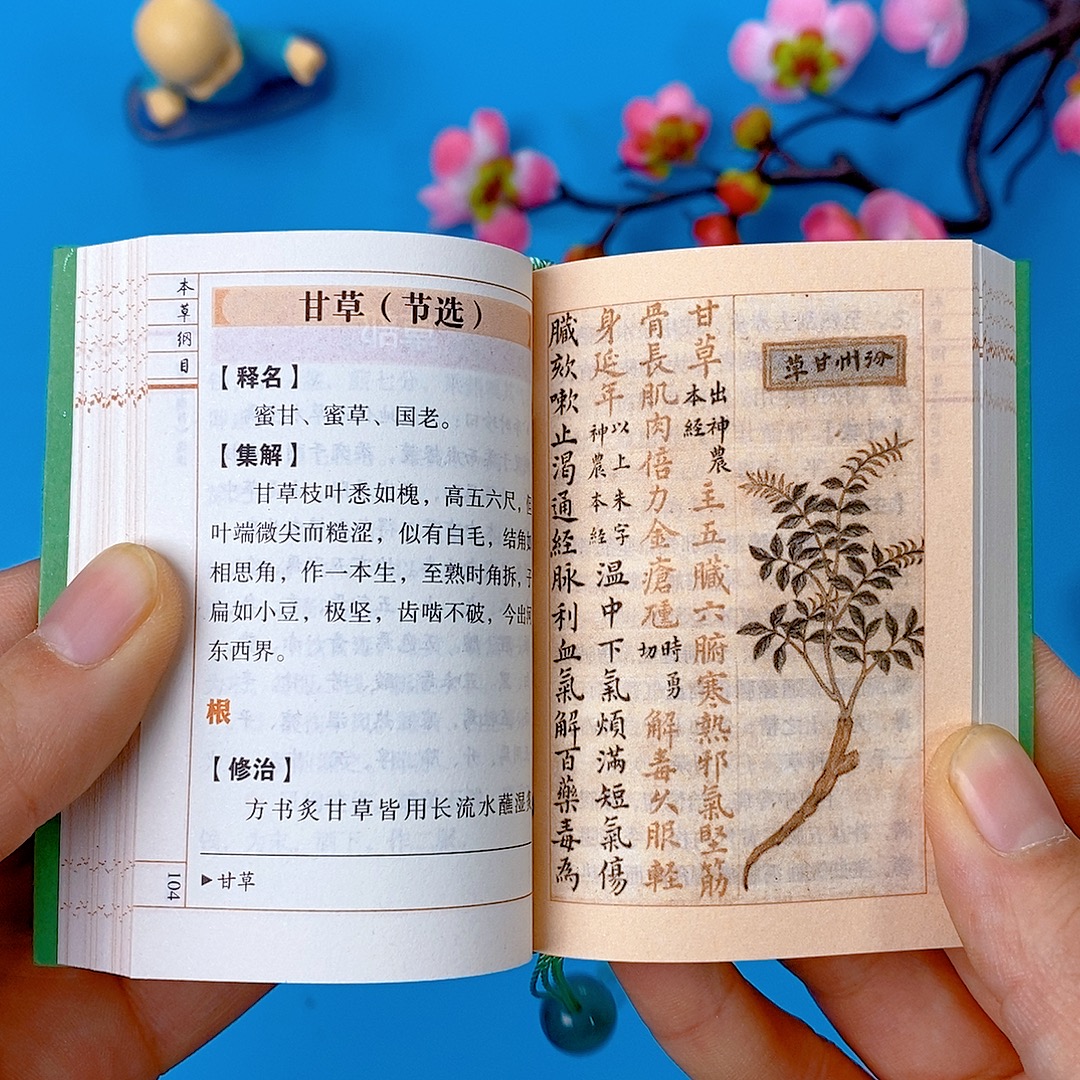 本草纲目
甘草（节选）
【释名】
蜜甘、蜜草、国老。
【集解】
甘草枝叶悉如槐，高五六尺，但
叶端微尖而糙涩，似有白毛，结角如
相思角，作一本生，至熟时角拆，子
扁如小豆，极坚，齿啮不破，今出河
东西界。
根
【修治】
方书炙甘草皆用长流水蘸湿炙
104
▶甘草
汾州甘草
甘草出神農本經主五臓六腑寒熱邪氣堅筋
骨長肌肉倍力金瘡尰時勇切解毒久服軽
身延年以上朱字神農本經温中下氣煩滿短氣傷
臓欬嗽止渴通經脉利血氣解百藥毒為